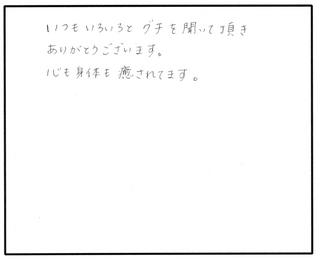 いつもいろいろと グチを聞いて頂き
ありがとうございます。
心も身体も癒されてます。